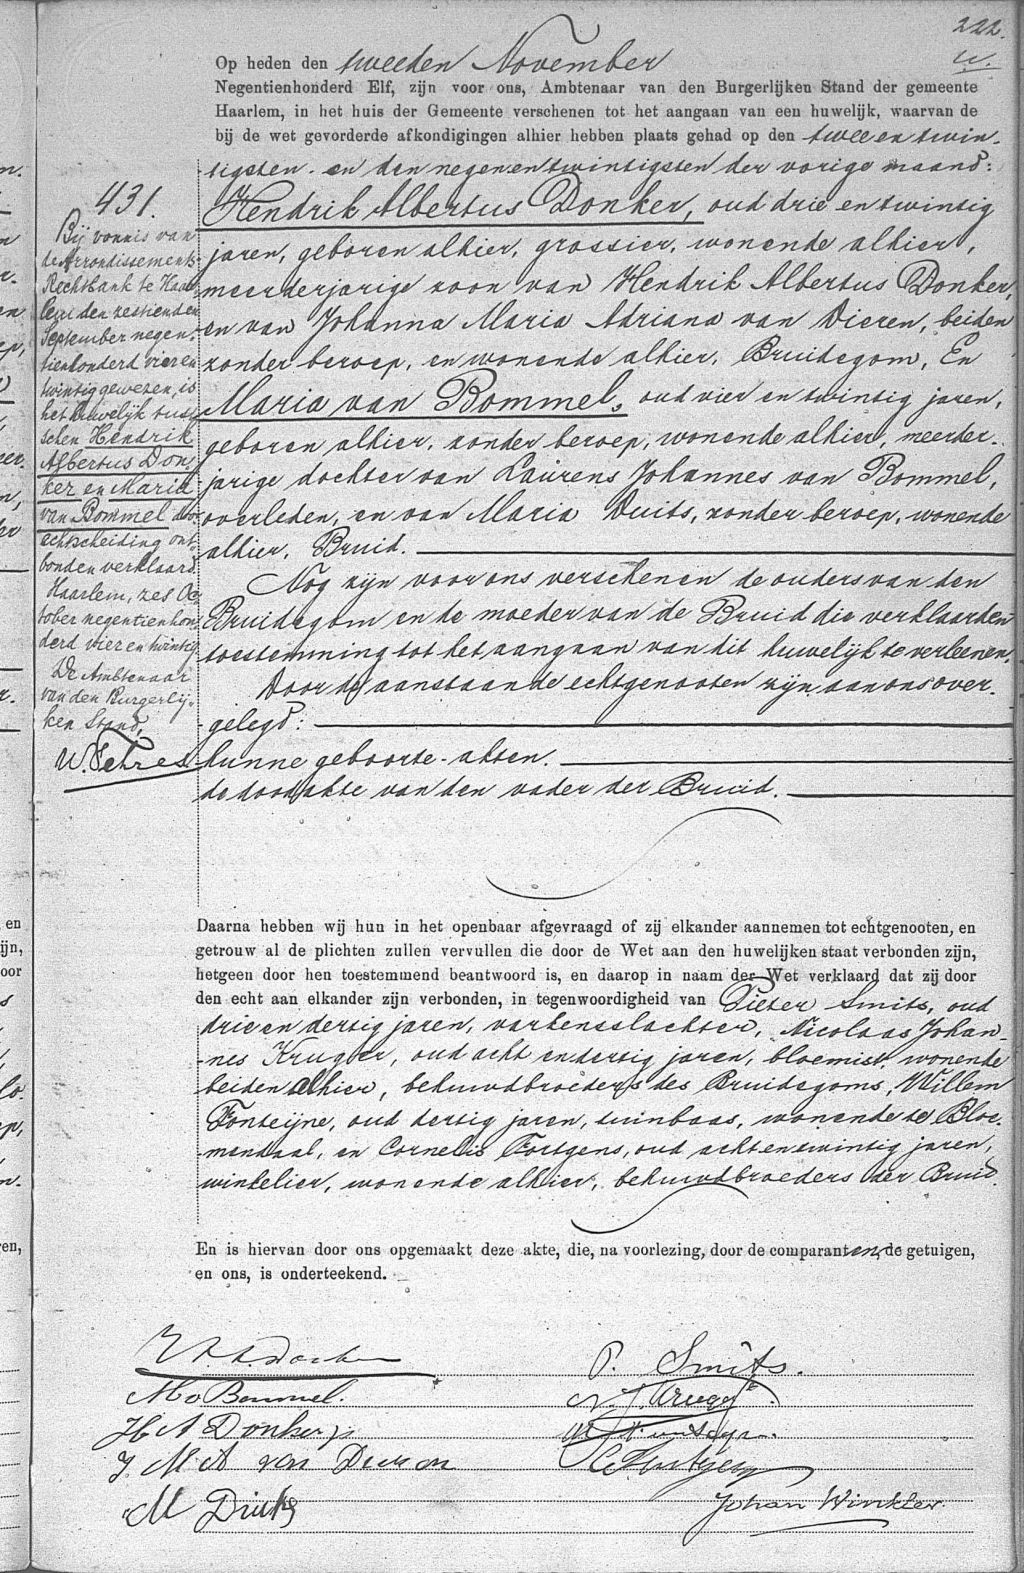 222.
w.
Op heden den tweeden November
Negentienhonderd Elf, zijn voor ons, Ambtenaar van den Burgerlijken Stand der gemeente
Haarlem, in het huis der Gemeente verschenen tot het aangaan van een huwelijk, waarvan de
bij de wet gevorderde afkondigingen alhier hebben plaats gehad op den twee en twin-
tigsten en den negenentwintigsten der vorige maand:
Hendrik Albertus Donker, oud drie en twintig
jaren, geboren alhier, grossier, wonende alhier,
meerderjarige zoon van Hendrik Albertus Donker,
en van Johanna Maria Adriana van Dieren, beiden
zonder beroep, en wonende alhier, Bruidegom, En
Maria van Bommel, oud vier en twintig jaren,
geboren alhier, zonder beroep, wonende alhier, meerder-
jarige dochter van Laurens Johannes van Bommel,
overleden, en van Maria Duits, zonder beroep, wonende
alhier, Bruid.
Nog zijn voor ons verschenen de ouders van den
Bruidegom en de moeder van de Bruid die verklaarden
toestemming tot het aangaan van dit huwelijk te verleenen.
Door de aanstaande echtgenooten zijn aan ons over-
gelegd:
hunne geboorte-akten.
de doodakte van den vader der Bruid.
431.
Bij vonnis van
de Arrondissements-
Rechtbank te Haar-
lem den zestienden
September negen-
tienhonderd vier en
twintig gewezen, is
het huwelijk tus-
schen Hendrik
Albertus Don-
ker en Maria
van Bommel door
echtscheiding ont-
bonden verklaard.
Haarlem, zes Oc-
tober negentienhon-
derd vier en twintig
De Ambtenaar
van den Burgerlij-
ken Stand,
W. Sehres
Daarna hebben wij hun in het openbaar afgevraagd of zij elkander aannemen tot echtgenooten, en
getrouw al de plichten zullen vervullen die door de Wet aan den huwelijken staat verbonden zijn,
hetgeen door hen toestemmend beantwoord is, en daarop in naam der Wet verklaard dat zij door
den echt aan elkander zijn verbonden, in tegenwoordigheid van Pieter Smits, oud
drie en dertig jaren, varkensslachter, Nicolaas Johan-
nes Krugger, oud acht en dertig jaren, bloemist, wonende
beiden alhier, behuwdbroeders des Bruidegoms, Willem
Fonteijne, oud dertig jaren, tuinbaas, wonende te Bloe-
mendaal, en Cornelis Fortgens, oud acht en twintig jaren,
winkelier, wonende alhier, behuwdbroeders der Bruid.
En is hiervan door ons opgemaakt deze akte, die, na voorlezing, door de comparanten, de getuigen,
en ons, is onderteekend.
H. A. Donker
M v Bommel.
H A Donker
J. M. A van Dieren
M Duits
P. Smits.
N. J. Krugger
C Fortgens
Johan Winkler